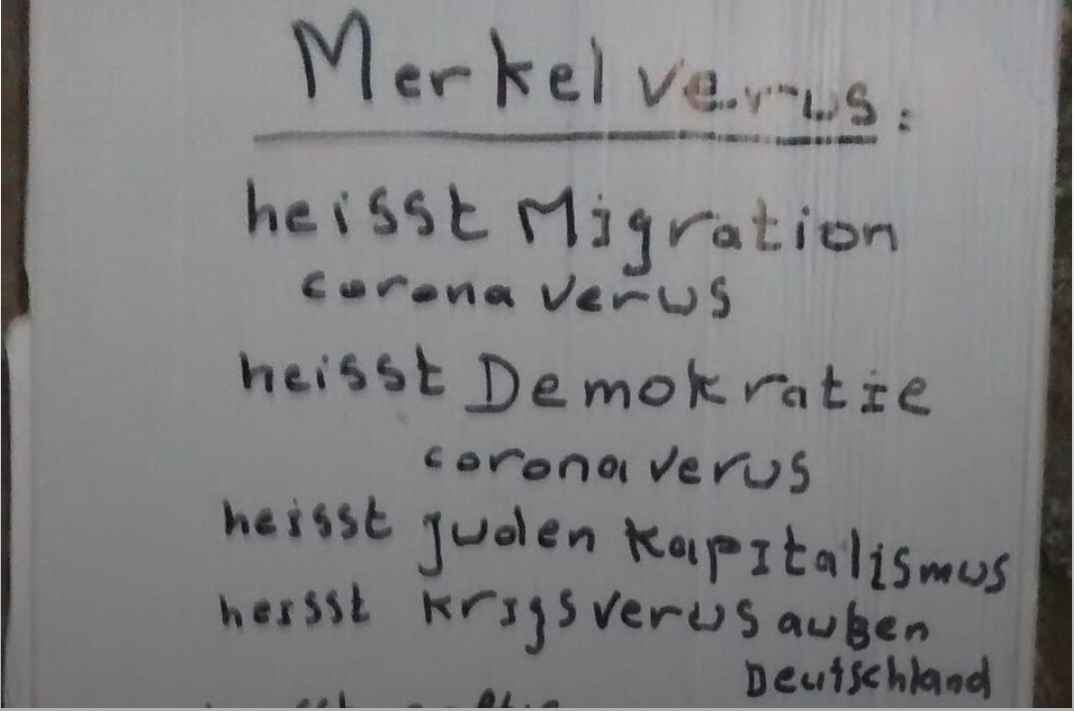 Merkel verus:
heisst Migration
corona verus
heisst Demokratie
corona verus
heisst Juden Kapitalismus
heisst krigsverus außen
Deutschland